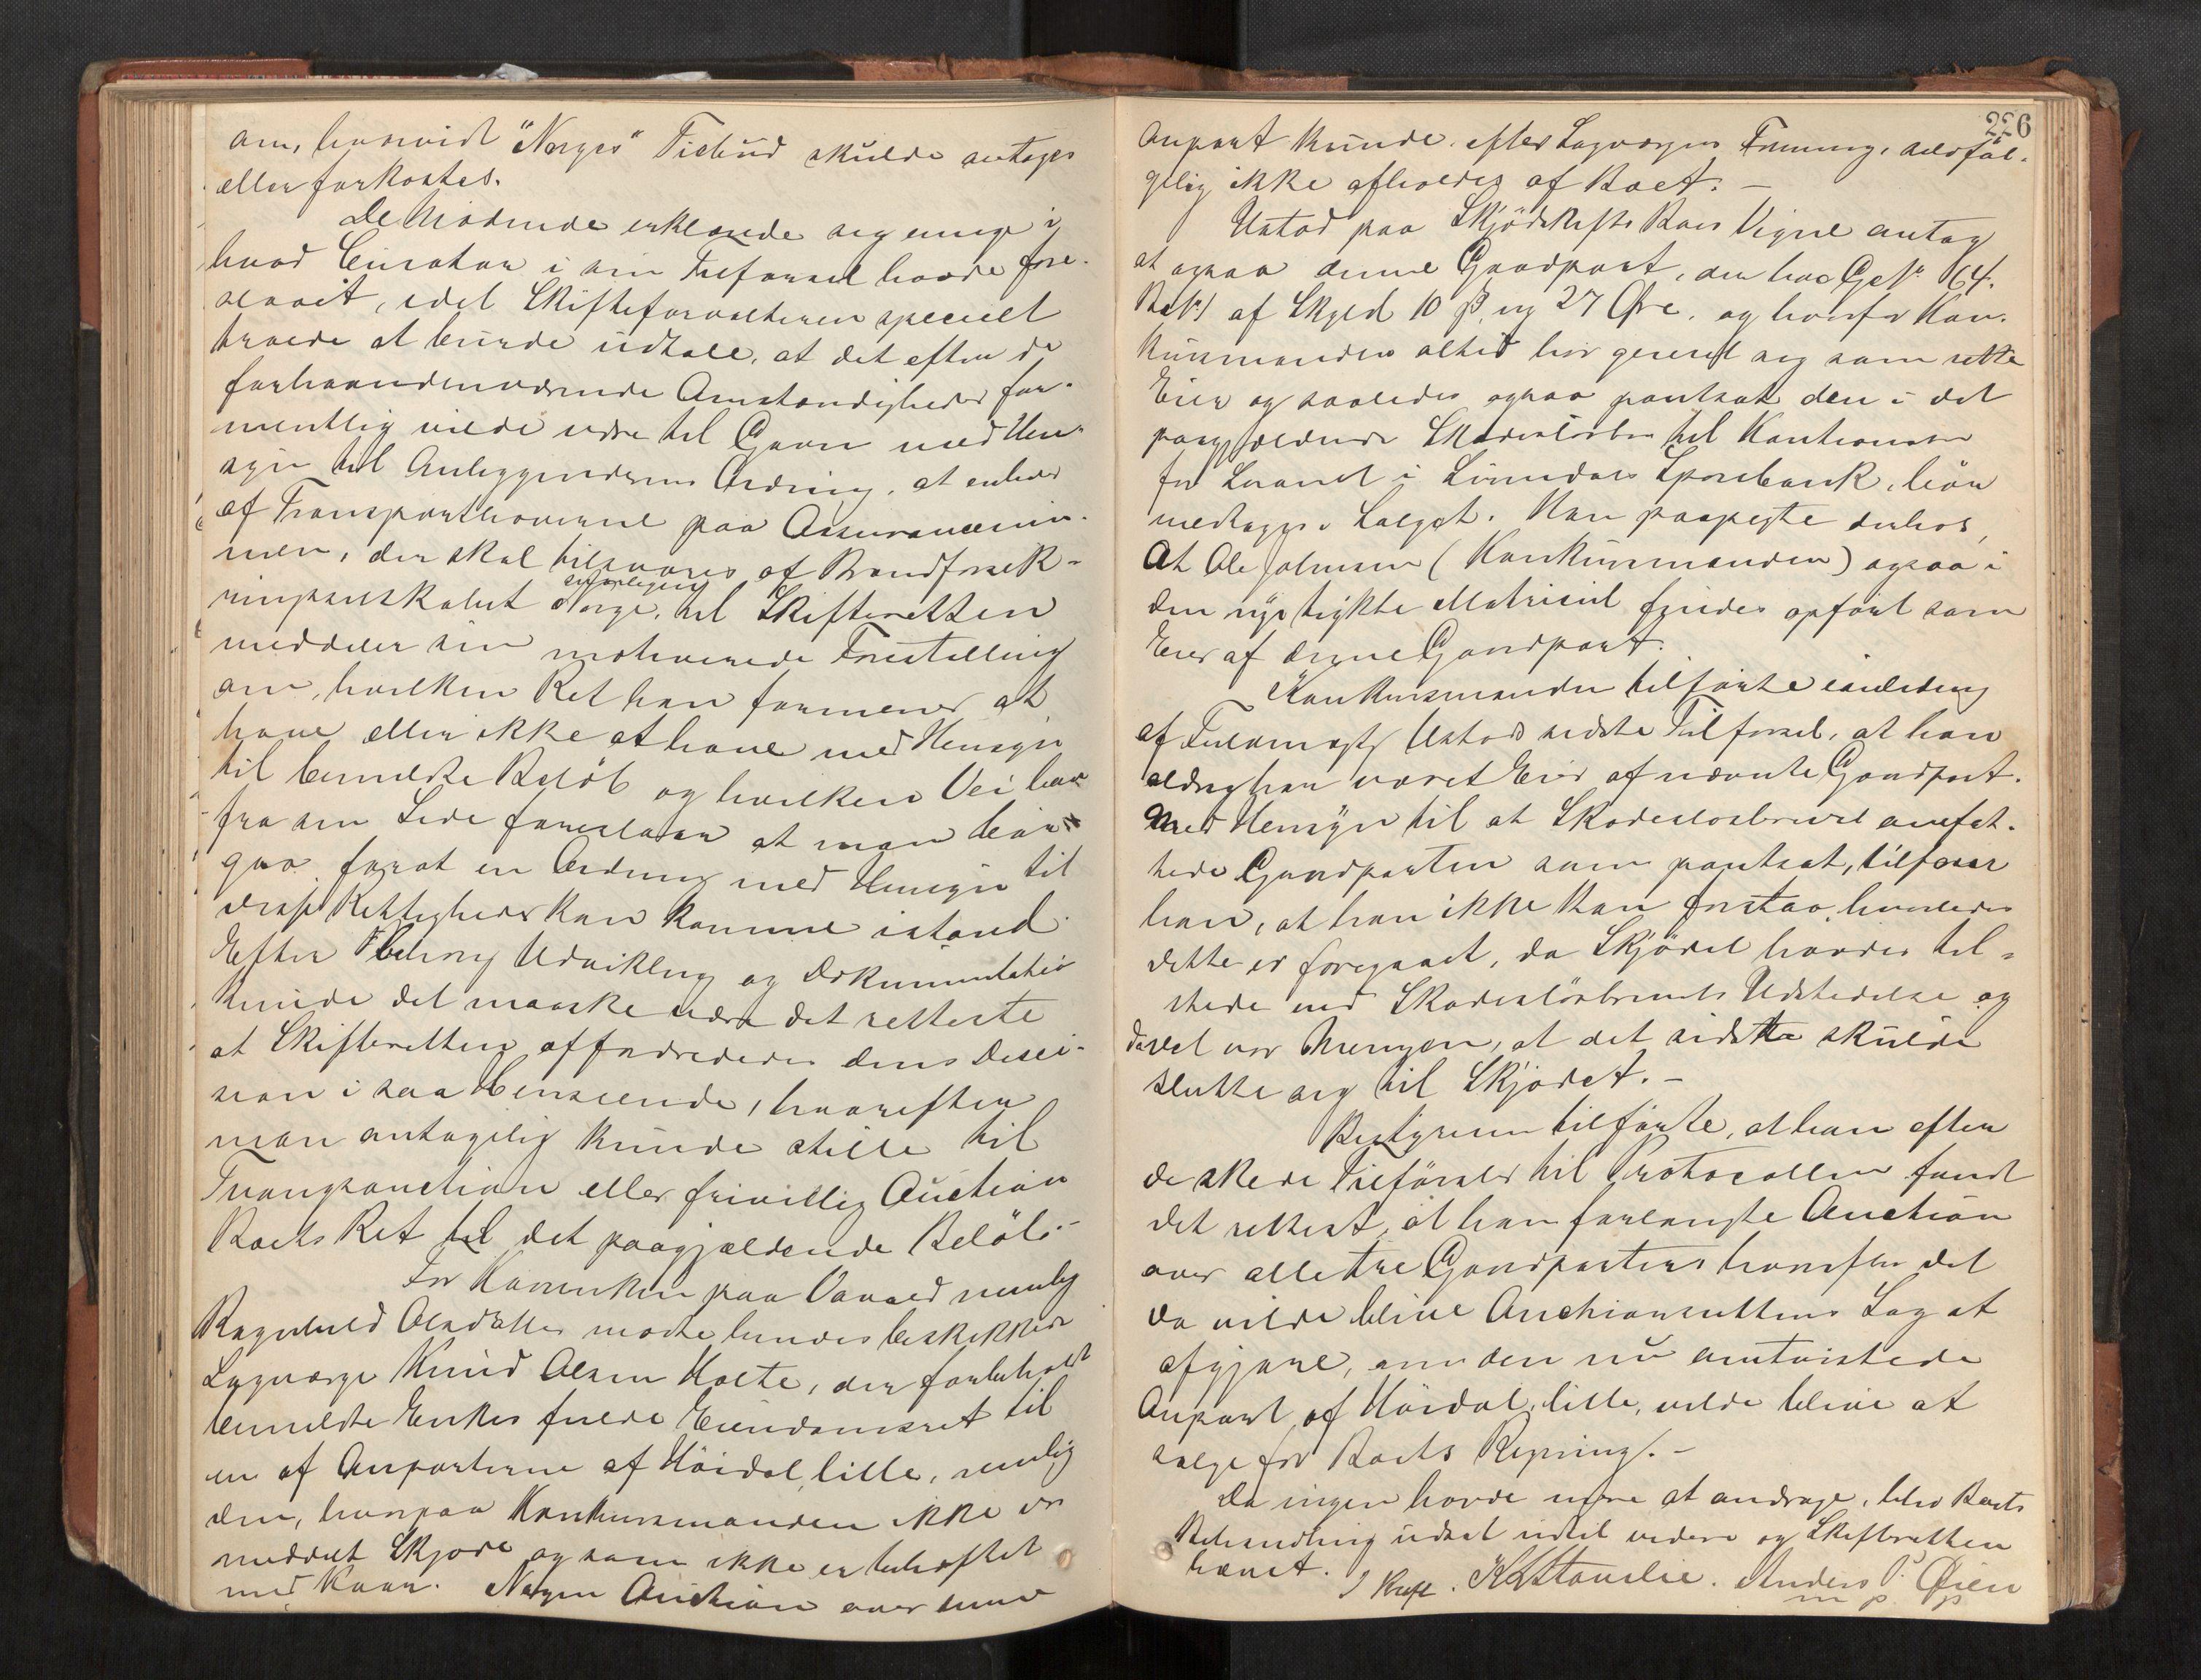 om, hvorvidt "Norges" Tilbud skulde antages
eller forkastes.
De Mødende erklærede sig enige i
hvad Curator i sin Tilførsel havde fore-
slaaet, idet Skifteforvalteren specielt
troede at burde udtale, at det efter de
forhaandenværende Omstændigheder for-
mentlig vilde være til Gavn med Hen-
syn til Anliggendernes Ordning, at enhver
af Transporthaverne paa Assurancesum-
men, der skal tilsvares af Brandforsik-
ringsselskabet Norge, til Skifteretten
meddeler sin motiverede Fremstilling
om, hvilken Ret han formener at
have eller ikke at have med Hensyn
til bemeldte Beløb og hvilken Vei han
fra sin Side foreslaar at man bør
gaa forat en Ordning med Hensyn til
disse Rettigheder kan komme istand.
Efter Udvikling og Dokumentation
kunde det maaske være det retteste
at Skifteretten affordredes dens Deci-
sion i saa Henseende, hvorefter
man antagelig kunde stille til
Tvangsauction eller frivillig Auction
Boets Ret til det paagjældende Beløb.-
For Kaarenken paa Vaaad nemlig
Ragnhild Olsdatter mødte hendes beskikkede
Lagværge Knud Olsen Holte, der forbeholdt
bemeldte Enkes fulde Eiendomsret til
en af Anparterne af Höidal, lille, nemlig
den, hvorpaa Konkursmanden ikke er
meddelt Skjøde og som ikke er beheftet
med Kaar. Nogen Auction over denne
226
Anpart kunde, efter Lagværgens Formening, selvføl-
gelig ikke afholdes af Boet. -
Ustad paa Skjødskifts Boes Vegne antog
at ogsaa denne Gaardpart, der har G.No 64.
B.No 1 af Skyld 10 ß og 27 Øre, og hvorfor Kon-
kursmanden altid har gereret sig som rette
Eier og saaledes ogsaa pantsat den i det
paagjældende Skadesløsbrev til Kautionisten
for Laanet i Surendals Sparebank, bør
medtages i Salget. Han paapegte derhos,
At Ole Johnsen (Konkursmanden) ogsaa i
den nye trykte Matricul findes opført som
Eier af denne Gaardpart.
Konkursmanden tilførte i anledning
af Fuldmægtig Ustads sidste Tilførsel, at han
aldrig har været Eier af nævnte Gaardpart.
Med Hensyn til at Skadesløsbrevet omfat-
tede Gaardparten som pantsat, tilføier
han, at han ikke kan forstaa, hvorledes
dette er foregaaet, da Skjødet havdes til-
stede ved Skadesløsbrevets Udstedelse og
det var Meningen, at det sidste skulde
slutte sig til Skjødet. -
Bestyreren tilførte, at han efter
de skede Tilførsler til Protocollen fandt
det rettest, at han forlangte Auction
over alle tre Gaardparter, hvorefter det
da vilde blive Auctionsrettens Sag at
afgjøre, om den nu omtvistede
Anpart af Höidal, lille, vilde blive at
sælge for Boets Regning. -
Da ingen havde mere at andrage, blev Boets
Behandling udsat indtil videre og Skifteretten
hævet.
Anders P. Øien
m. p.